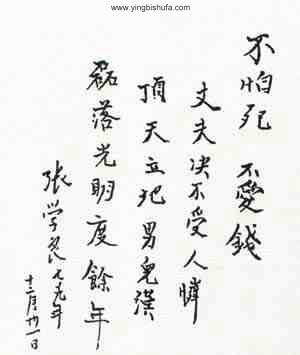 www.yingbishufa.com
不怕死 不愛錢
丈夫决不受人憐
頂天立地男兒漢
磊落光明度餘年
張学良七九年
十二月廿一日